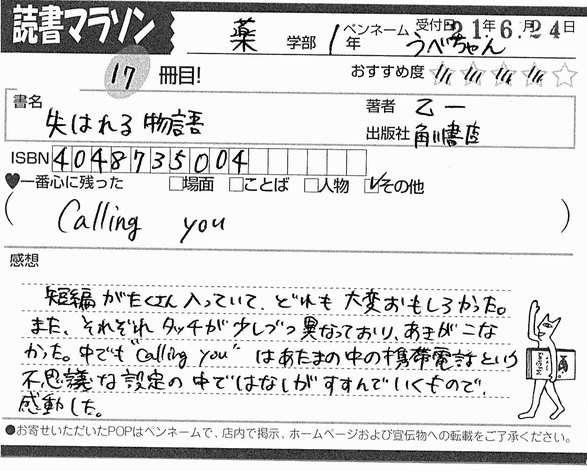 読書マラソン
薬 学部 1年 ペンネーム うべちゃん 受付日 21年6.月24日
17 冊目! おすすめ度 ☆☆☆☆☆
書名 失はれる物語
著者 乙一
出版社 角川書店
ISBN 4048735004
♥一番心に残った □場面 □ことば □人物 ☑その他
( Calling you )
感想
短編がたくさん入っていて、どれも大変おもしろかった。
また、それぞれタッチが少しづつ異なっており、あきがこな
かった。中でも "Calling you" はあたまの中の携帯電話という
不思議な設定の中ではなしがすすんでいくもので、
感動した。
●お寄せいただいたPOPはペンネームで、店内で掲示、ホームページおよび宣伝物への転載をご了承ください。